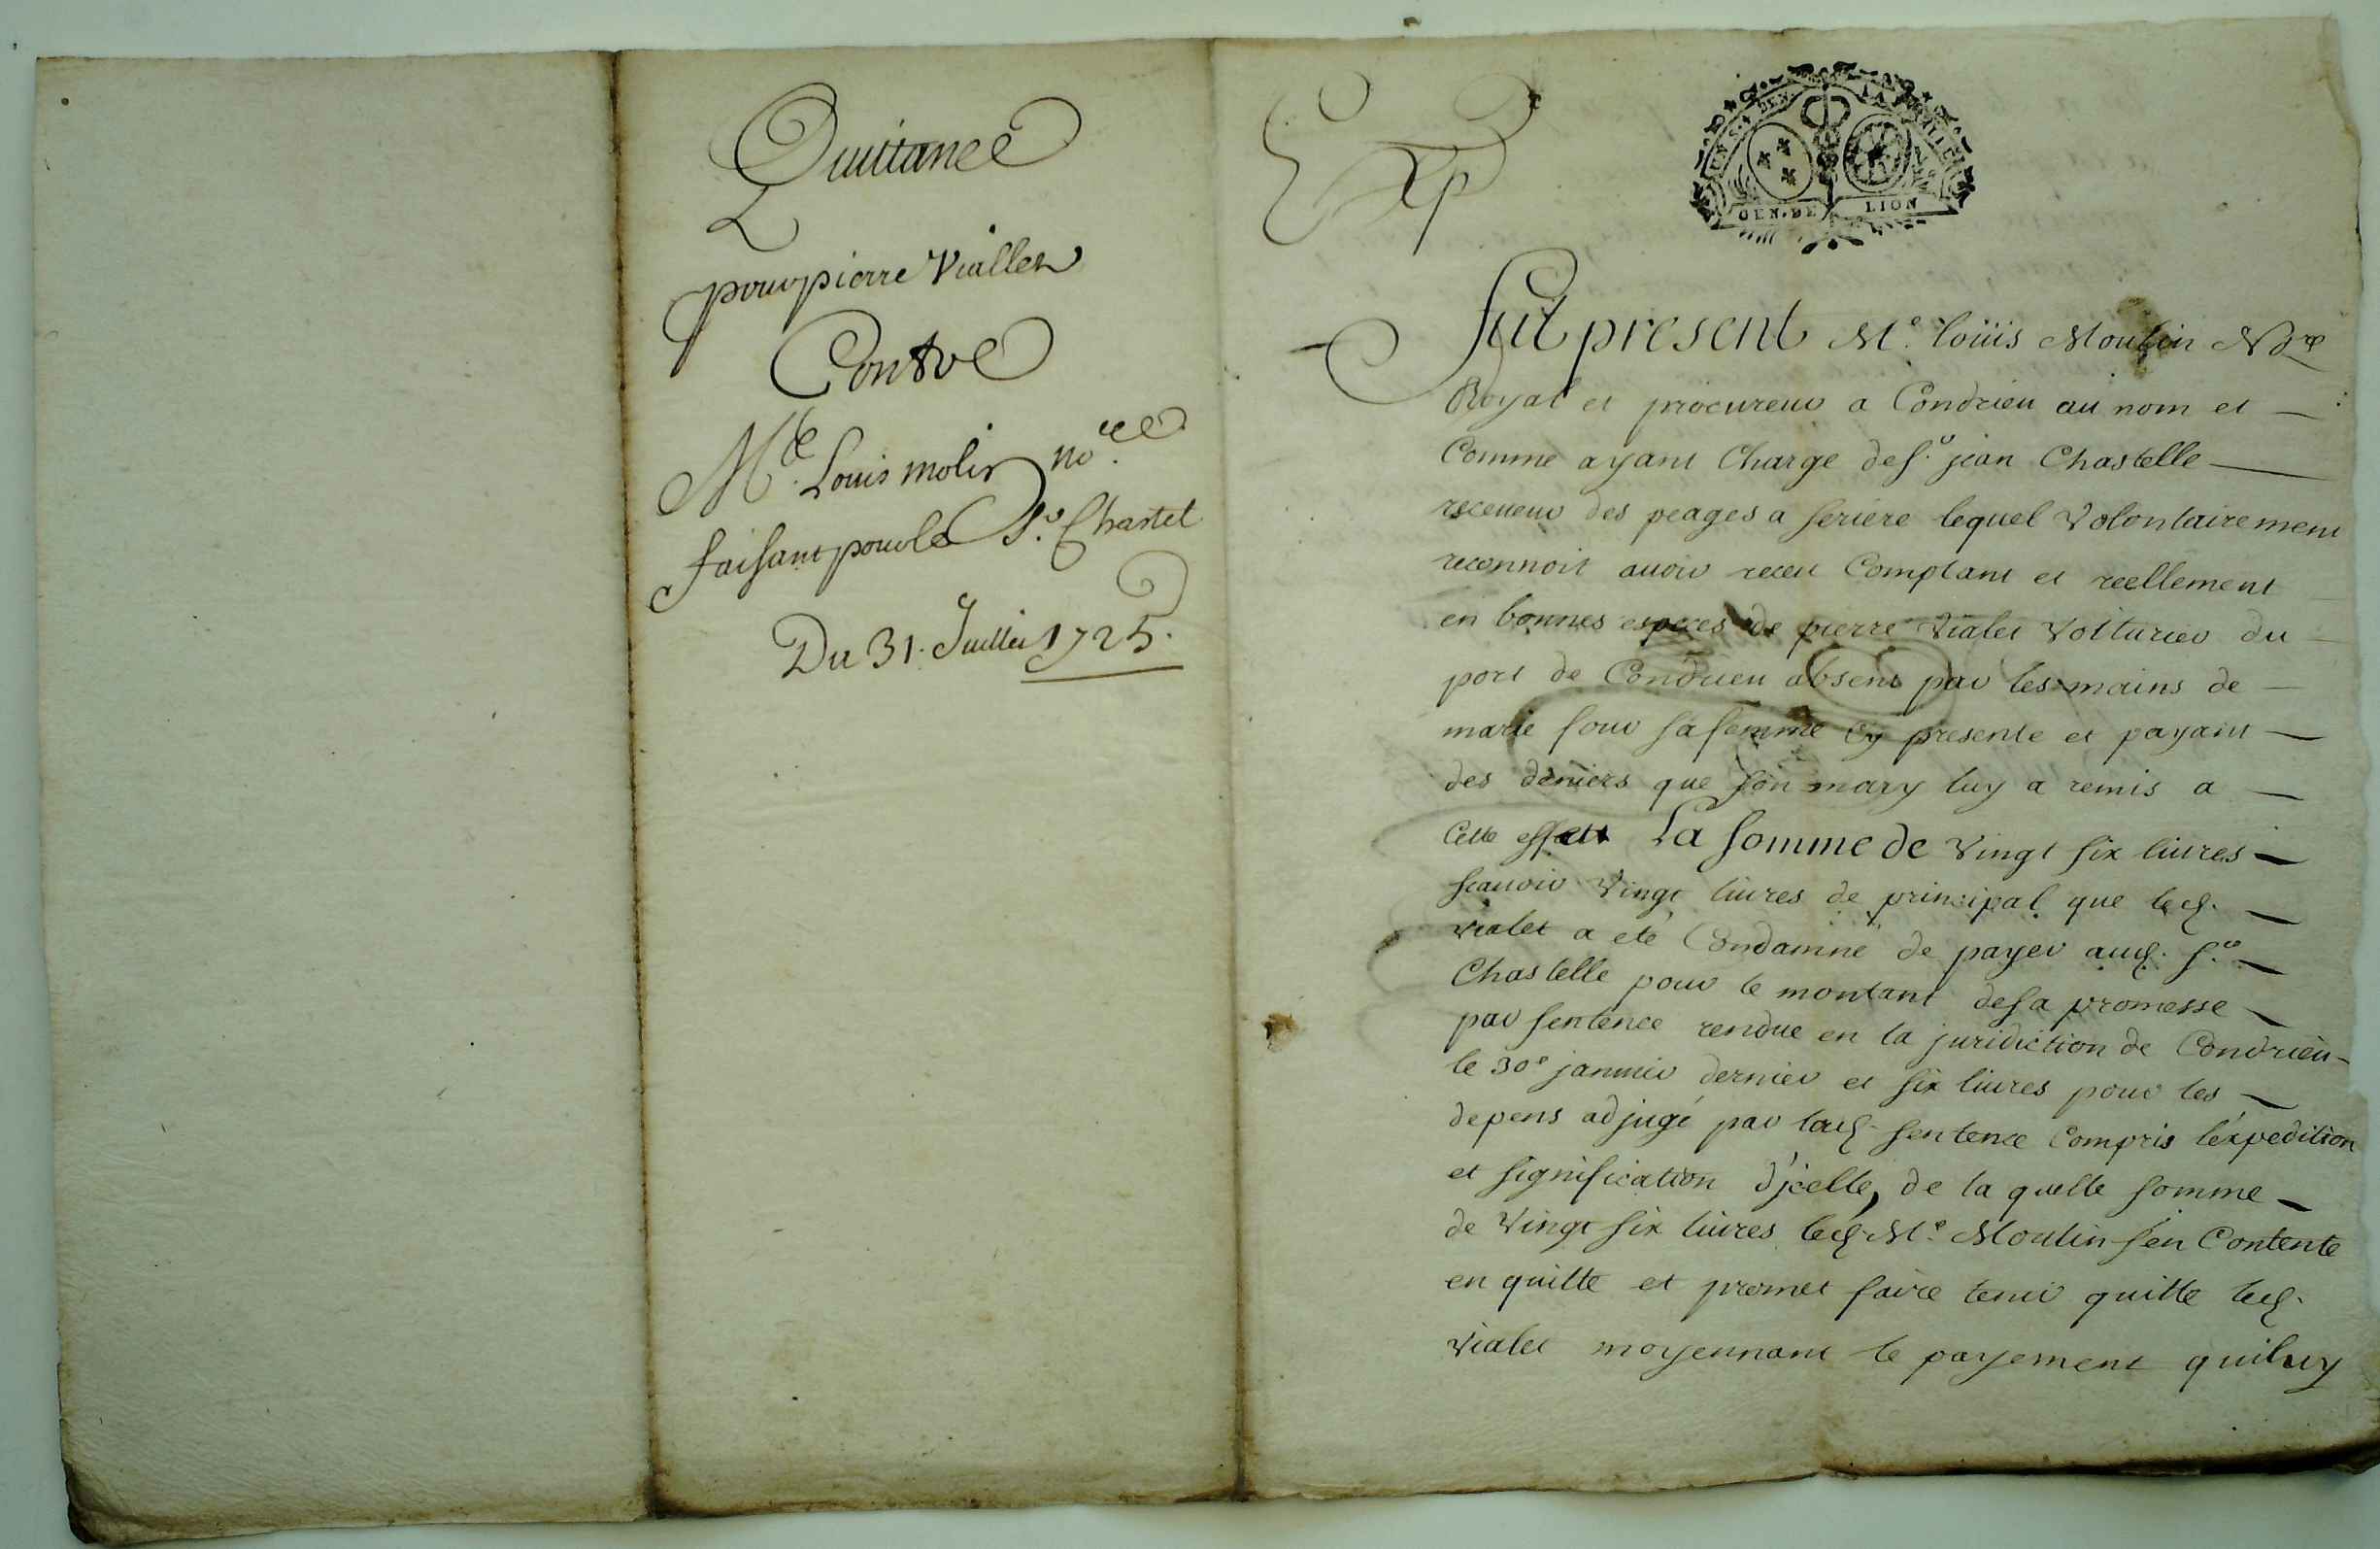 Quittance
pour pierre Viallet
Contre
Me. Louis molin no.re
faisant pour le Sr. Chastel
Du 31. Juillet 1725.
Exp
GEN. DE LION
fut present Me. loüis Moulin Nore
Royal et procureur a Condrieu au nom et
Comme ayant Charge de sr. jean Chastelle
receveur des peages a seriere lequel Volontairement
reconnoit auoir receu Comptant et reellement
en bonnes especes de pierre Vialet Voiturier du
port de Condrieu absent par les mains de
marie four sa femme Cy presente et payant
des deniers que son mary luy a remis a
Cette effett La somme de Vingt six liures
scauoir Vingt liures de principal que led.
Vialet a eté Condamné de payer aud. sr.
Chastelle pour le montant de sa promesse
par sentence rendue en la juridiction de Condrieu
le 30e januier dernier et six liures pour les
depens adjugé par lad. sentence Compris l'expedition
et signification d'jcelle, de la quelle somme
de Vingt six liures led. Me. Moulin s'en Contente
en quitte et promet faire tenir quitte led.
Vialet moyennant le payement quil luy